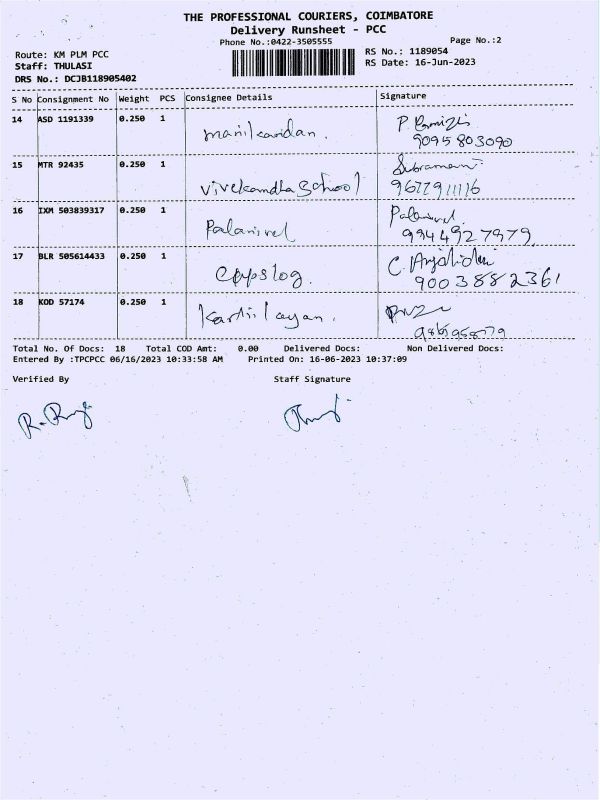 THE PROFESSIONAL COURIERS, COIMBATORE
Delivery Runsheet - PCC
Phone No.:0422-3505555 Page No.:2
Route: KM PLM PCC RS No.: 1189054
Staff: THULASI RS Date: 16-Jun-2023
DRS No.: DCJB118905402
S No Consignment No Weight PCS Consignee Details Signature
14 ASD 1191339 0.250 1 manikandan.
9095803090
15 MTR 92435 0.250 1 Vivekamdha School Subramani
9677911116
16 IXM 503839317 0.250 1 Palanivel Palanivel
9944927979
17 BLR 505614433 0.250 1 cpyslog.
9003882361
18 KOD 57174 0.250 1
Total No. Of Docs: 18 Total COD Amt: 0.00 Delivered Docs: Non Delivered Docs:
Entered By :TPCPCC 06/16/2023 10:33:58 AM Printed On: 16-06-2023 10:37:09
Verified By Staff Signature